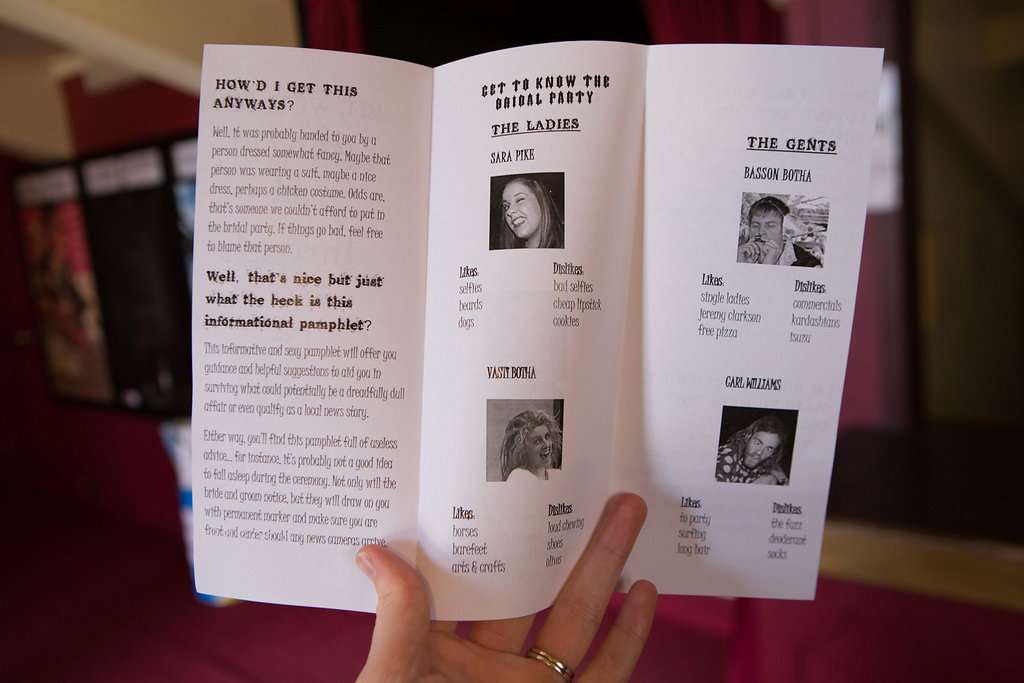 HOW'D I GET THIS
ANYWAYS?
Well, it was probably handed to you by a
person dressed somewhat fancy. Maybe that
person was wearing a suit, maybe a nice
dress, perhaps a chicken costume. Odds are,
that's someone we couldn't afford to put in
the bridal party. If things go bad, feel free
to blame that person.
Well, that's nice but just
what the heck is this
informational pamphlet?
This informative and sexy pamphlet will offer you
guidance and helpful suggestions to aid you in
surviving what could potentially be a dreadfully dull
affair or even qualify as a local news story.
Either way, you'll find this pamphlet full of useless
advice... for instance, it's probably not a good idea
to fall asleep during the ceremony. Not only will the
bride and groom notice, but they will draw on you
with permanent marker and make sure you are
front and center should any news cameras arrive.
GET TO KNOW THE
BRIDAL PARTY
THE LADIES
SARA PIKE
Likes:
selfies
beards
dogs
Dislikes:
bad selfies
cheap lipstick
cookies
VASTI BOTHA
Likes:
horses
barefeet
arts & crafts
Dislikes
loud chewing
shoes
olives
THE GENTS
BASSON BOTHA
Likes:
single ladies
jeremy clarkson
free pizza
Dislikes:
commercials
kardashians
isuzu
CARL WILLIAMS
Likes:
to party
surfing
long hair
Dislikes
the fuzz
deoderant
socks